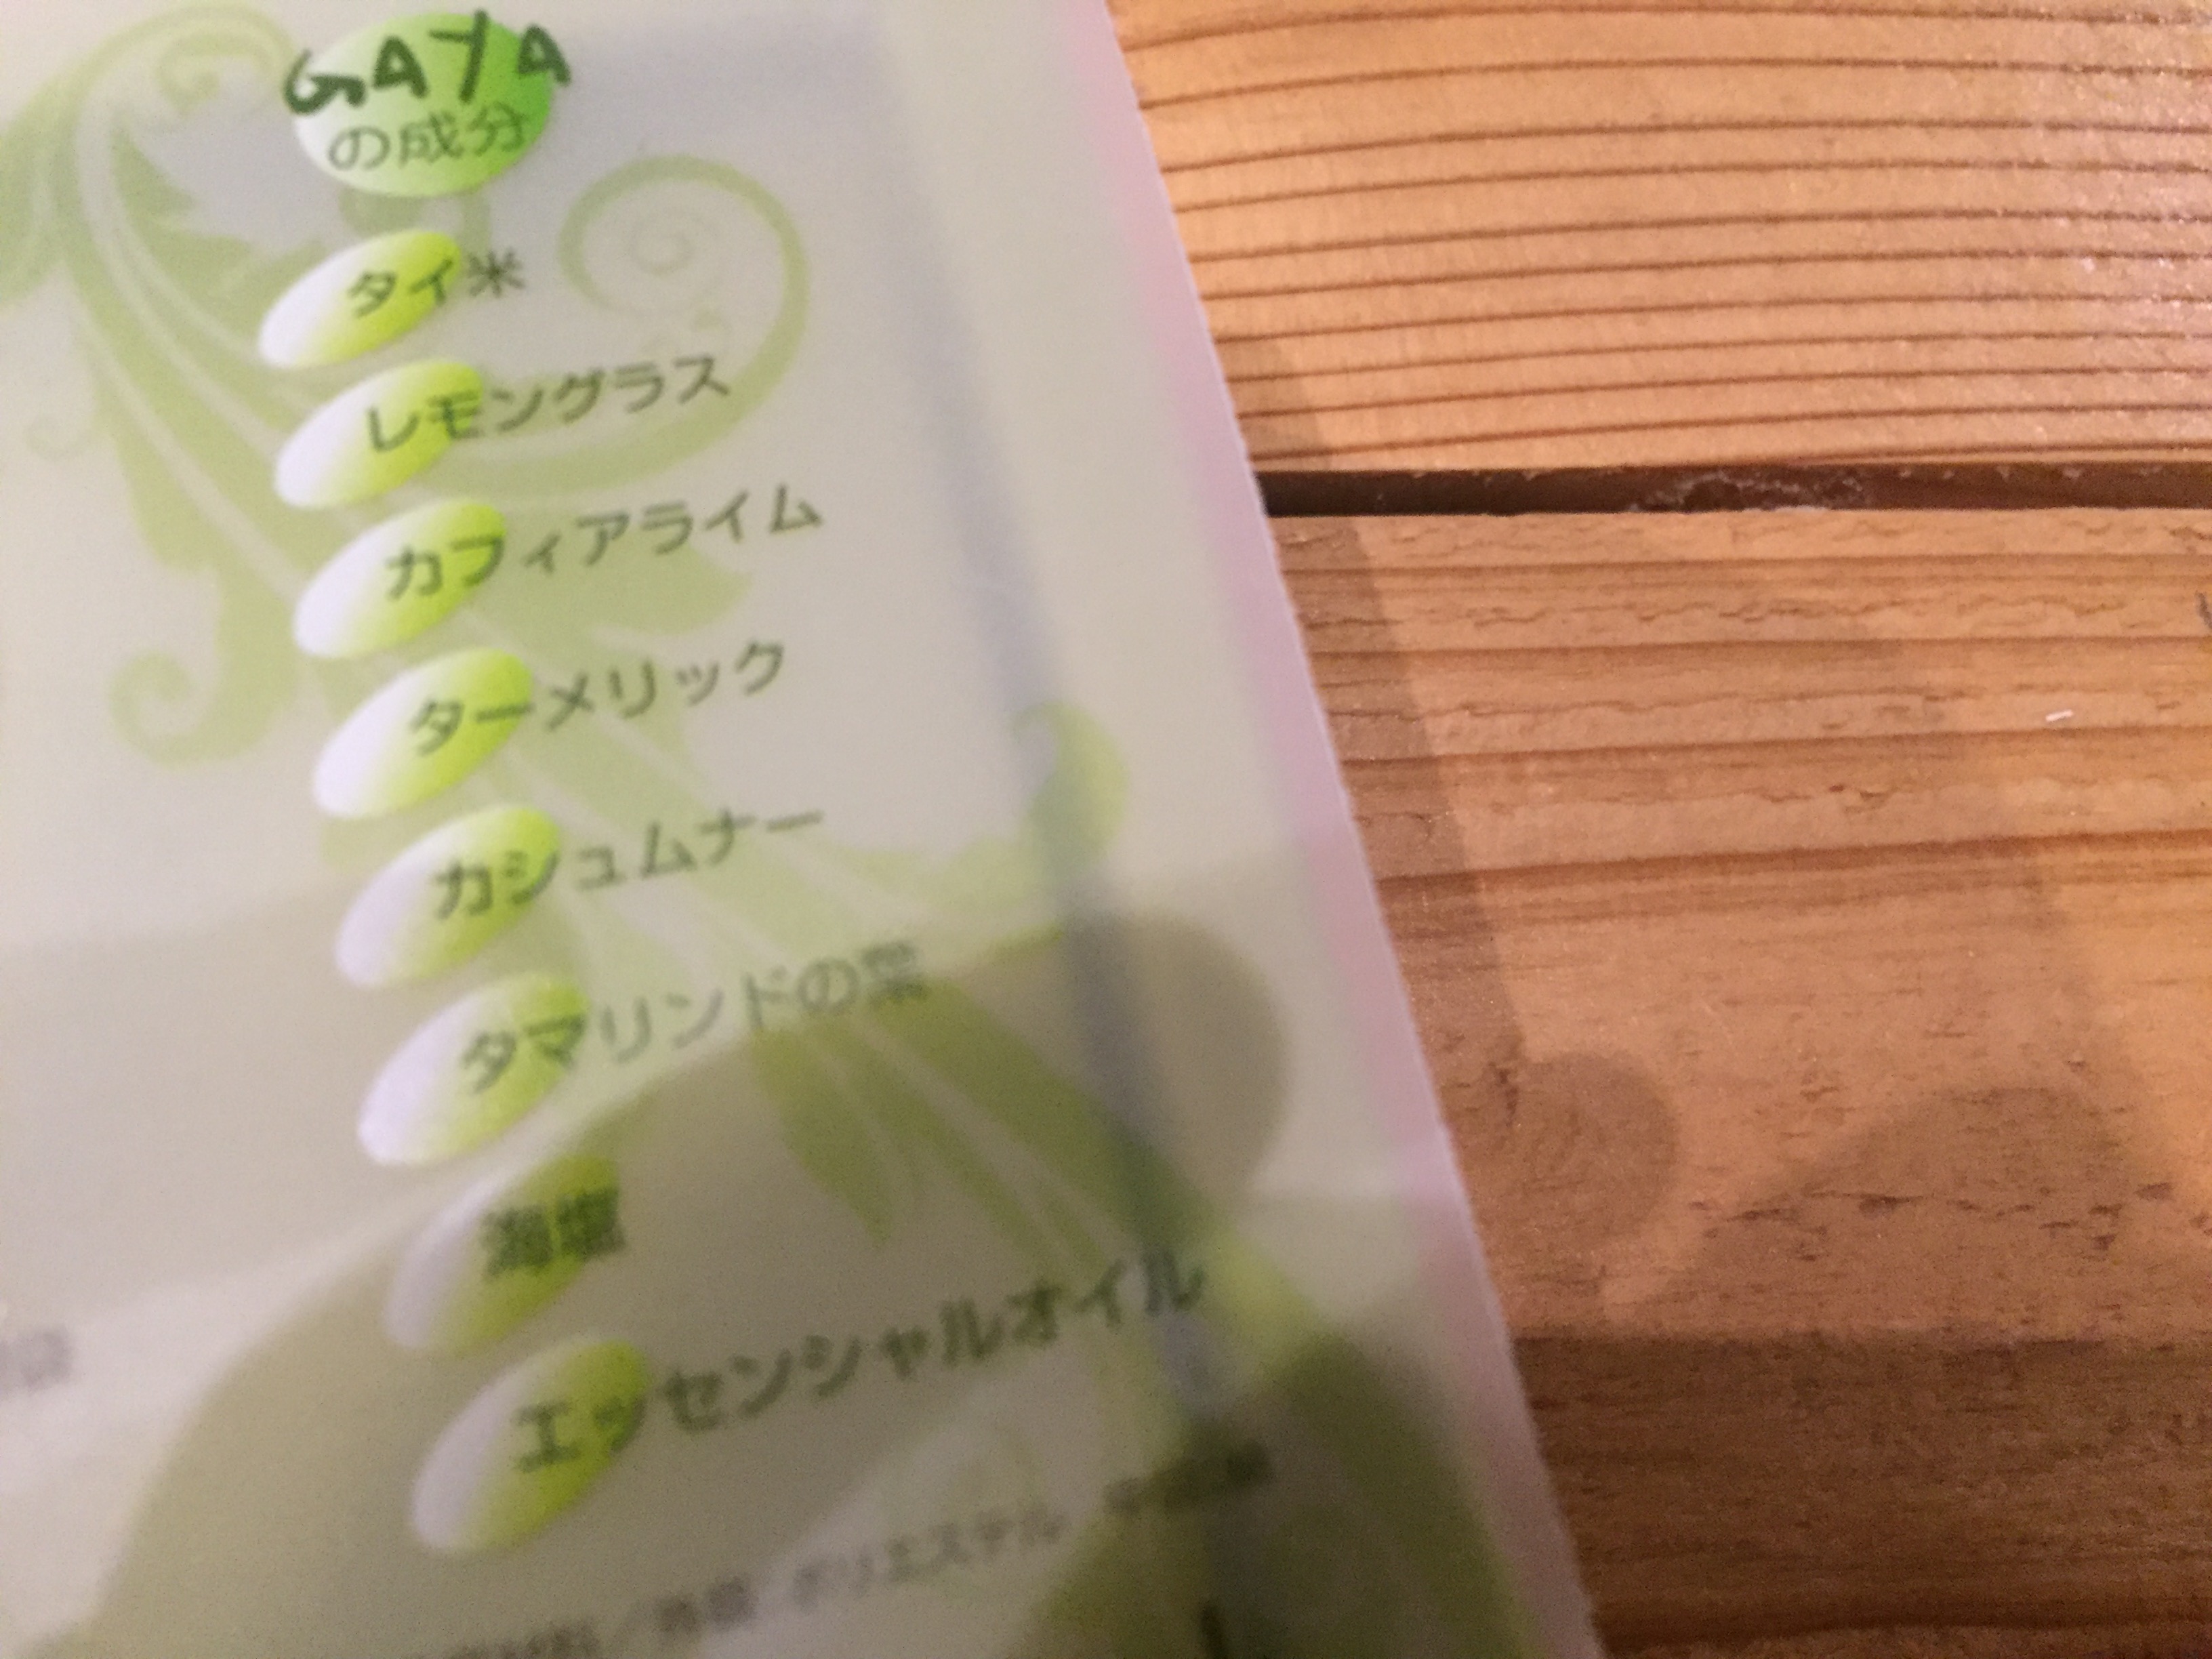 GAYA
の成分
タイ米
レモングラス
カフィアライム
ターメリック
カシュムナー
タマリンドの葉
海塩
エッセンシャルオイル
ポリエステル